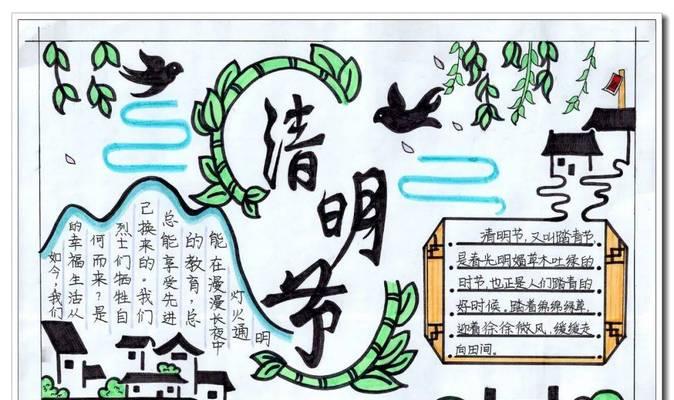 清明节
如今,我们
的幸福生活从
何而来?是
烈士们牺牲自
己换来的。我们
总能享受先进
的教育,总
能在漫漫长夜中
灯火通
明
清明节,又叫踏青节
是春光明媚草木吐绿的
时节,也正是人们踏青的
好时候,踏着绵绵绿草,
迎着徐徐微风,缓缓走
向田间。